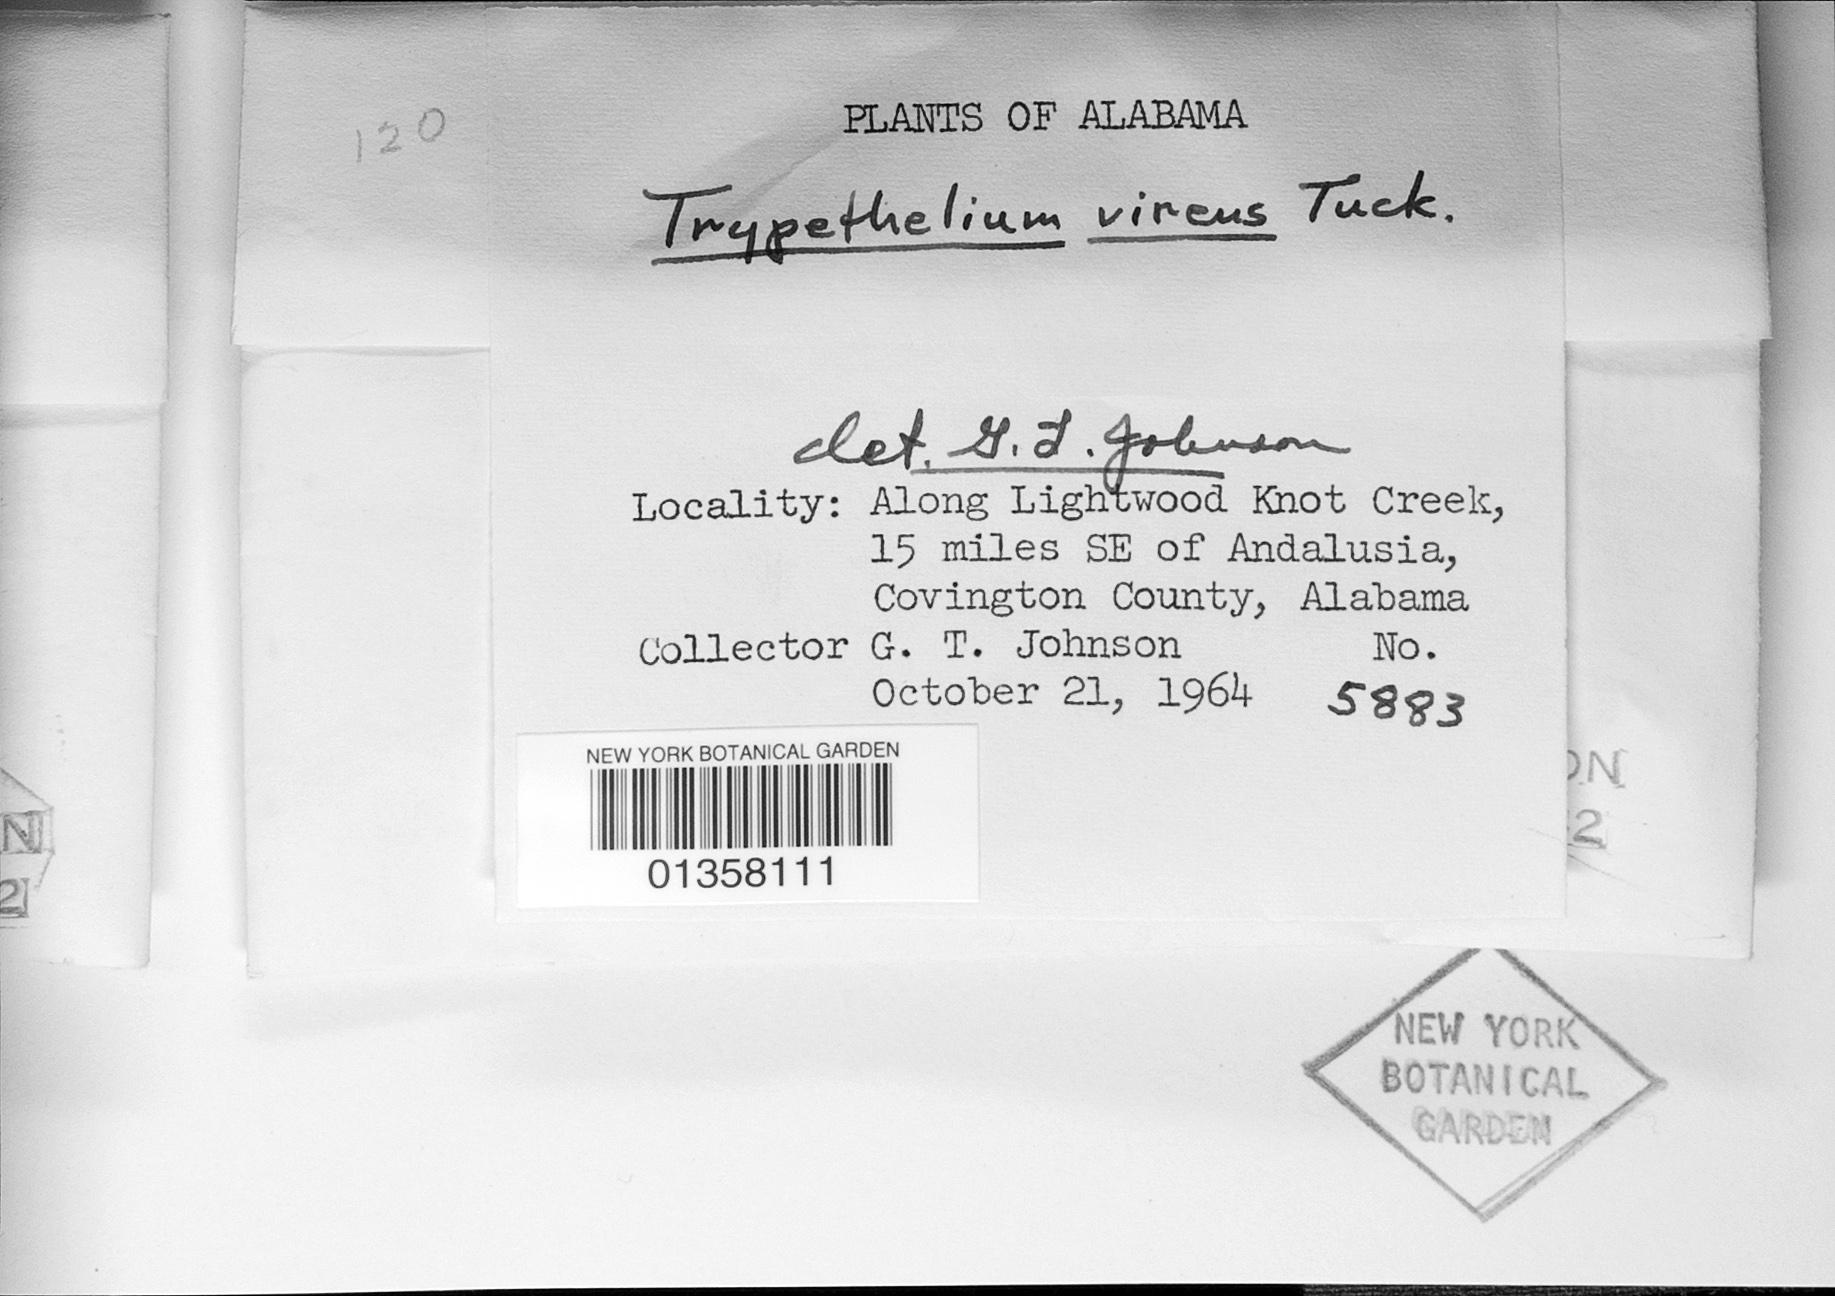 120
PLANTS OF ALABAMA
Trypethelium virens Tuck.
det. G. T. Johnson
Locality: Along Lightwood Knot Creek,
15 miles SE of Andalusia,
Covington County, Alabama
Collector G. T. Johnson No.
October 21, 1964 5883
NEW YORK BOTANICAL GARDEN
01358111
ON
2
N
2
NEW YORK
BOTANICAL
GARDEN